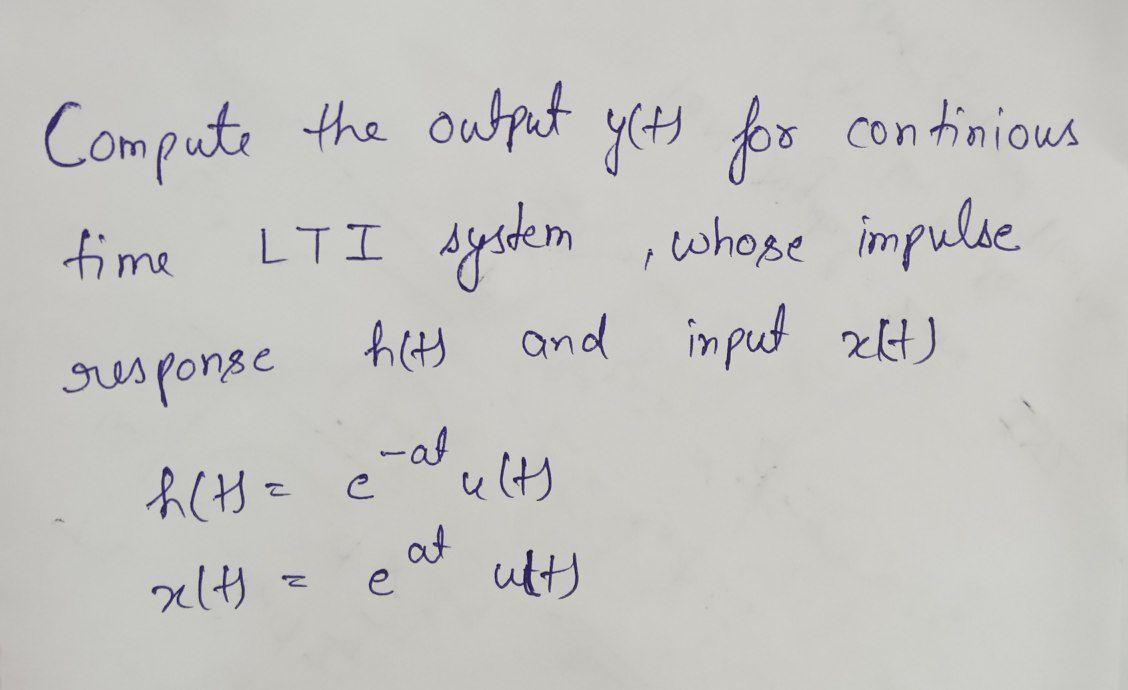 Compute the output y(t) for continious
time LTI system , whose impulse
response h(t) and input x(t)
h(t) = e^-at u(t)
x(t) = e^at u(t)